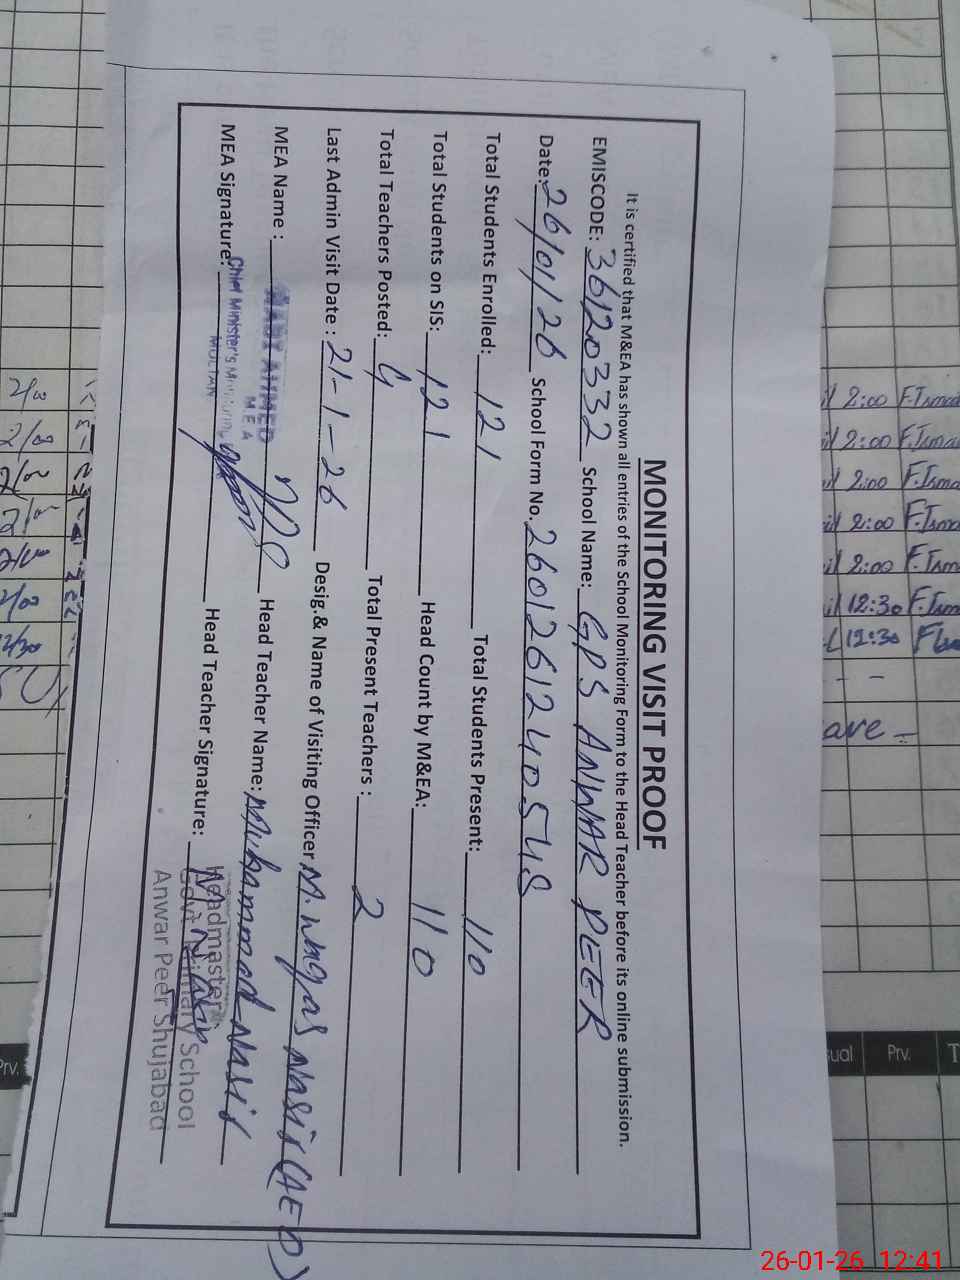 MONITORING VISIT PROOF
It is certified that M&EA has shown all entries of the School Monitoring Form to the Head Teacher before its online submission.
EMISCODE: 36120332 School Name: GPS ANWAR PEER
Date: 26/01/26 School Form No. 260126124054S
Total Students Enrolled: 121 Total Students Present: 110
Total Students on SIS: 121 Head Count by M&EA: 110
Total Teachers Posted: 4 Total Present Teachers : 2
Last Admin Visit Date : 21-1-26 Desig.& Name of Visiting Officer M. Waqas Nasir (AEO)
MEA Name : AHMED Head Teacher Name: Muhammad Nasir
MEA
MEA Signature: Chief Minister's Monitoring Head Teacher Signature:
MULTAN
Headmaster
Govt Primary School
Anwar Peer Shujabad
2/00
2/00
2/00
2/00
2/00
2/00
12/30
2:00 F.Isma
2:00 F.Isma
2:00 F.Isma
2:00 F.Isma
2:00 F.Isma
12:30 F.Isma
12:30
ave -
Prv.
ual Prv. T
26-01-26 12:41